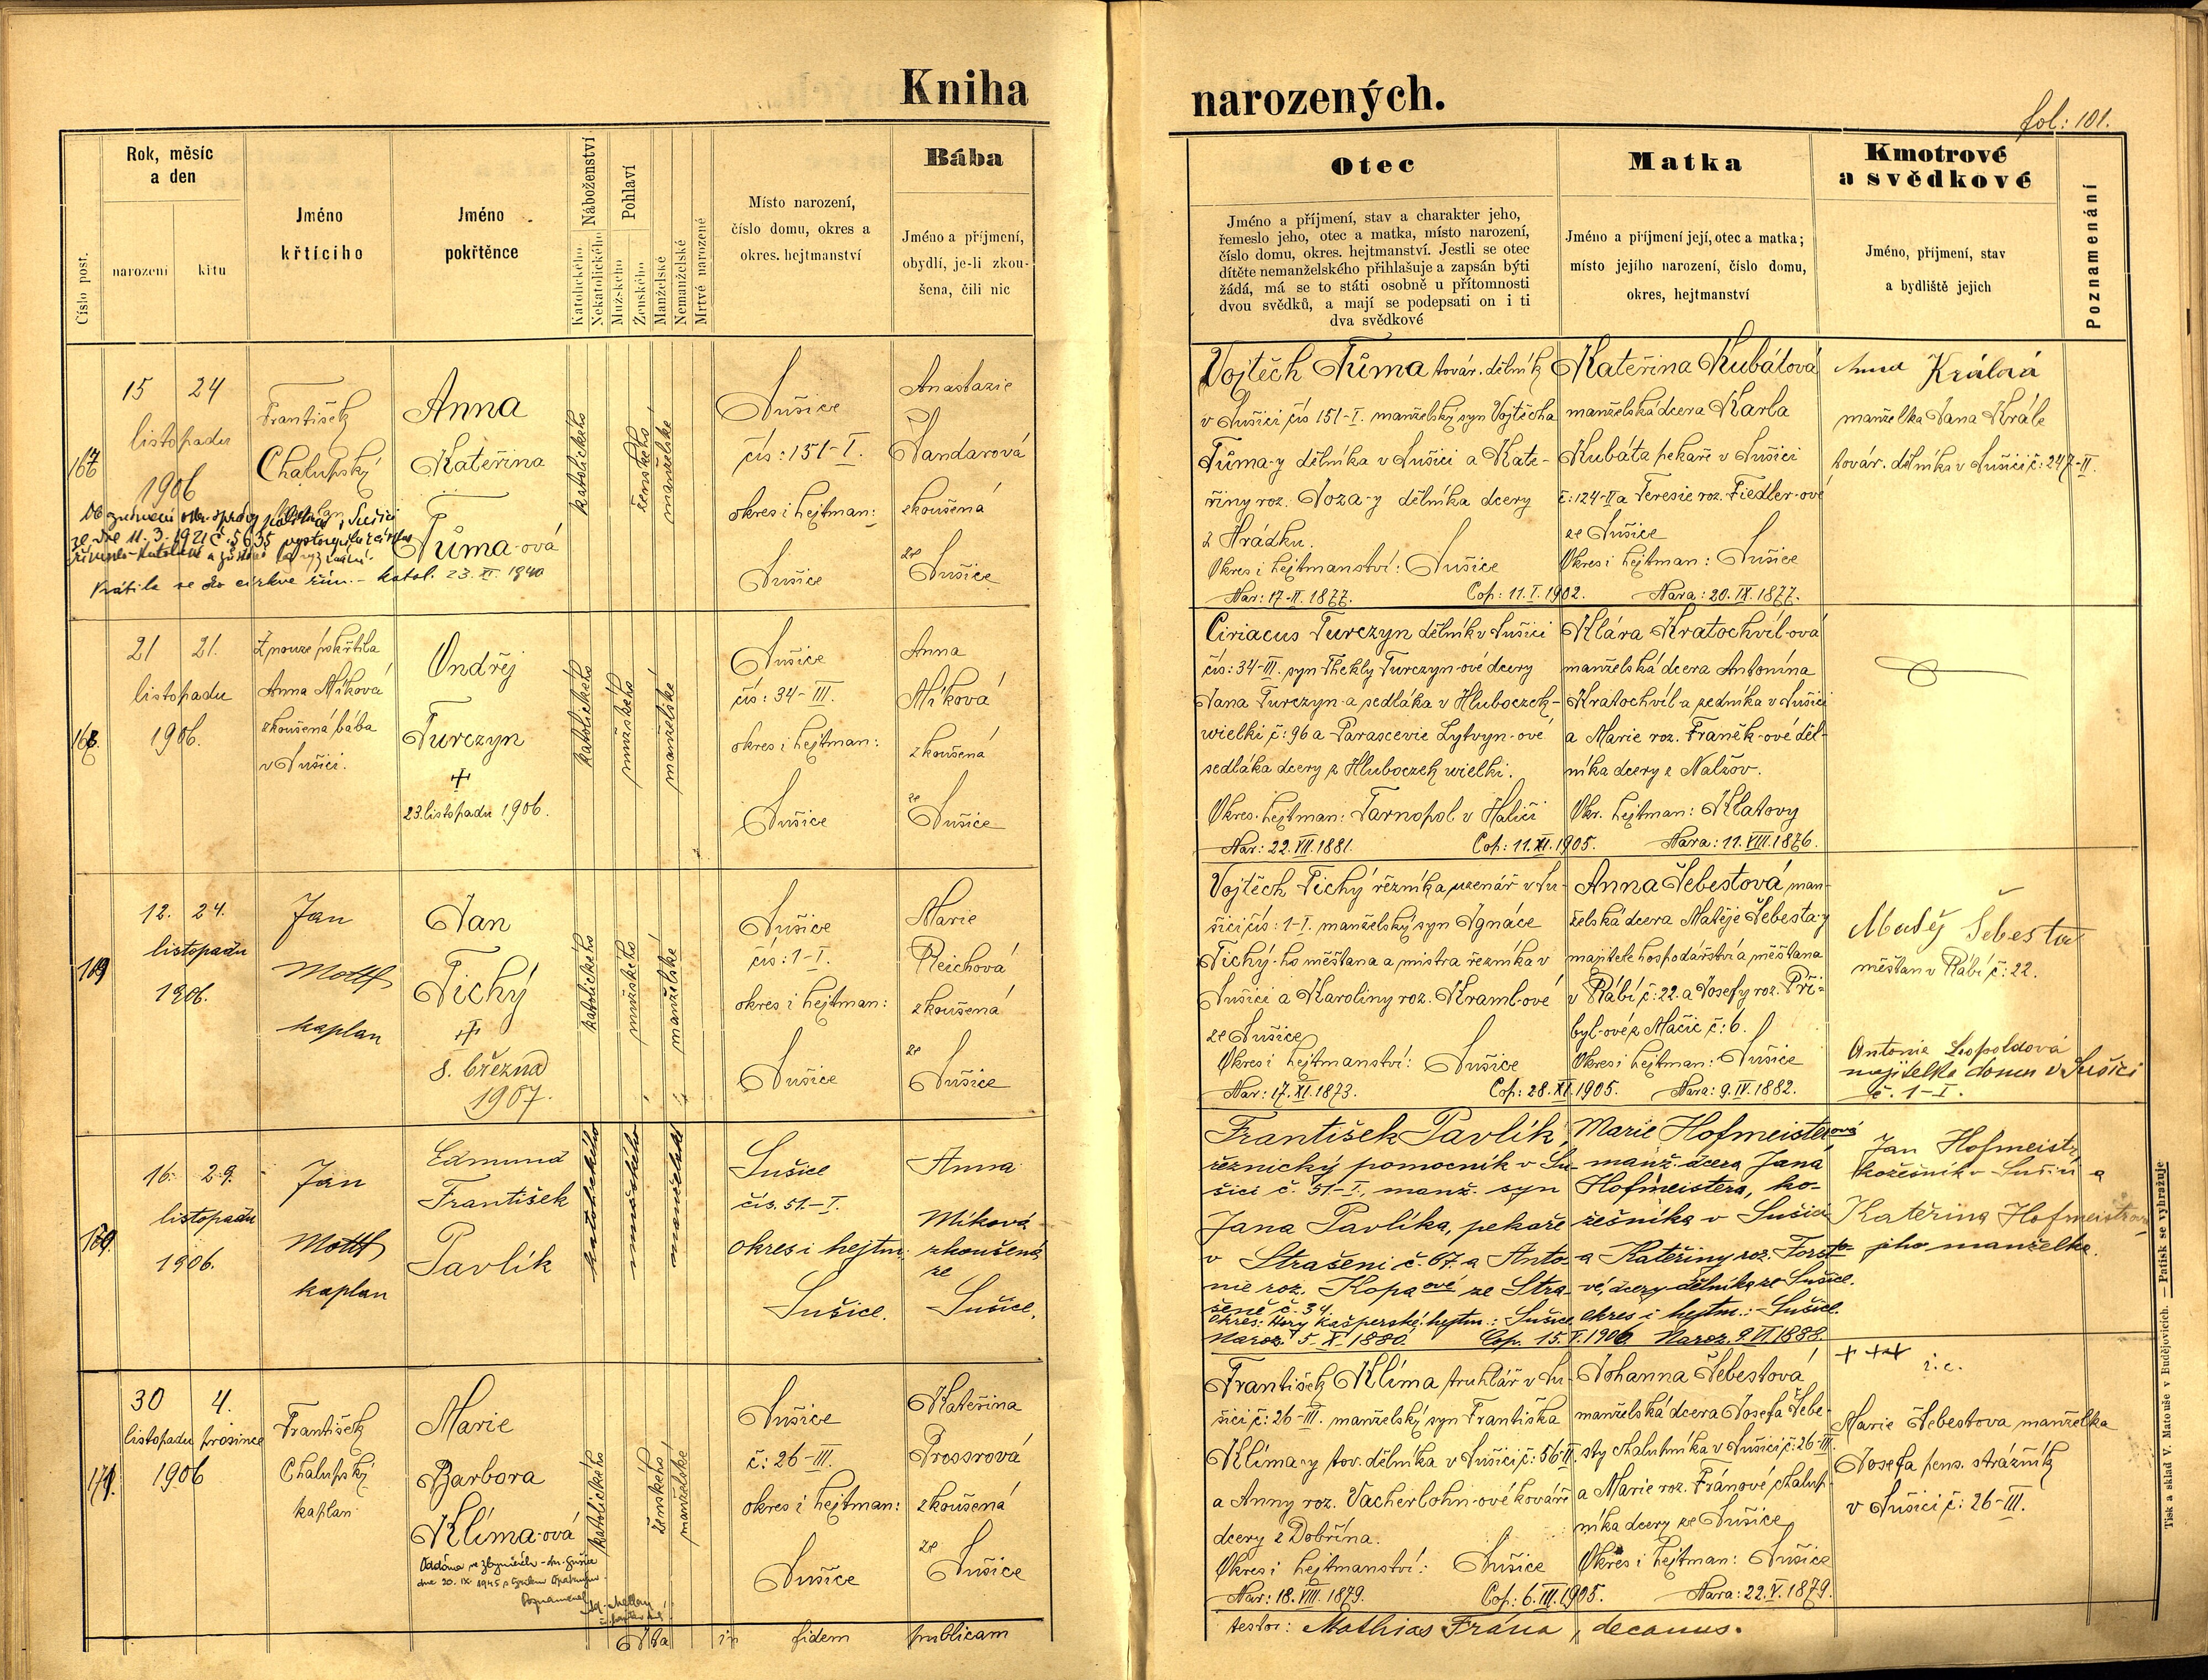 Kniha
narozených.
fol: 101.
Číslo post.
Rok, měsíc
a den
narození
křtu
Jméno
křtícího
Jméno
pokřtěnce
Náboženství
Katolického
Nekatolického
Pohlaví
Mužského
Ženského
Manželské
Nemanželské
Mrtvě narozené
Místo narození,
číslo domu, okres a
okres. hejtmanství
Bába
Jméno a příjmení,
obydlí, je-li zkou-
šena, čili nic
Otec
Jméno a příjmení, stav a charakter jeho,
řemeslo jeho, otec a matka, místo narození,
číslo domu, okres. hejtmanství. Jestli se otec
dítěte nemanželského přihlašuje a zapsán býti
žádá, má se to státi osobně u přítomnosti
dvou svědků, a mají se podepsati on i ti
dva svědkové
Matka
Jméno a příjmení její, otec a matka;
místo jejího narození, číslo domu,
okres, hejtmanství
Kmotrové
a svědkové
Jméno, příjmení, stav
a bydliště jejich
Poznamenání
15 24
listopadu
1906
František
Chalupský
Anna
Kateřina
Tůma-ová
katolického
ženského
manželské
ze dne 11. 3. 1921 č. 5635
Vrátila se do církve řím.- katol. 23. XI. 1940
Sušice
čís: 151-I.
okres i hejtman:
Sušice
Anastazie
Šandarová
zkoušená
ze
Sušice
Vojtěch Tůma továr. dělník
v Sušici čís 151-I. manželský syn Vojtěcha
Tůma-y dělníka v Sušici a Kate-
řiny roz. Joza-y dělníka dcery
z Hrádku.
Okres i hejtmanství: Sušice
Nar: 17.II. 1877. Cop: 11. I. 1902.
Kateřina Kubátová
manželská dcera Karla
Kubáta pekaře v Sušici
č: 124-II a Teresie roz. Fiedler-ové
ze Sušice
Okres i hejtman: Sušice
Nara: 20. IX. 1877.
Anna Králová
manželka Jana Krále
továr. dělníka v Sušici č: 247-II.
168.
21 21.
listopadu
1906.
Z nouze pokřtila
Anna Míková
zkoušená bába
v Sušici.
Ondřej
Turczyn
+
23. listopadu 1906.
katolického
mužského
manželské
Sušice
čís: 34-III.
okres i hejtman:
Sušice
Anna
Míková
zkoušená
ze
Sušice
Ciriacus Turczyn dělník v Sušici
čís: 34-III. syn Thekly Turczyn-ové dcery
Jana Turczyn-a sedláka v Hluboczek-
wielki č: 96 a Parascevie Lytvyn-ové
sedláka dcery z Hluboczek wielki.
Okres. hejtman: Tarnopol v Haliči
Nar: 22. VII. 1881. Cop: 11. XI. 1905.
Klára Kratochvíl-ová
manželská dcera Antonína
Kratochvíl-a zedníka v Sušici
a Marie roz. Franěk-ové děl-
níka dcery z Nalžov.
Okr. hejtman: Klatovy
Nara: 11. VIII. 1876.
169
12. 24.
listopadu
1906.
Jan
Mottl
kaplan
Jan
Tichý
+
8. března
1907.
katolického
mužského
manželské
Sušice
čís: 1-I.
okres i hejtman:
Sušice
Marie
Reichová
zkoušená
ze
Sušice
Vojtěch Tichý řezník a uzenář v Su-
šici čís: 1-I. manželský syn Ignáce
Tichý-ho měšťana a mistra řezníka v
Sušici a Karoliny roz. Kraml-ové
ze Sušice
Okres i hejtmanství: Sušice
Nar: 17. XI. 1873. Cop: 28. XI. 1905.
Anna Šebestová man-
želská dcera Matěje Šebesta-y
majitele hospodářství a měšťana
v Rábí č: 22. a Josefy roz. Při-
byl-ové z Mačic č: 6.
Okres i hejtman: Sušice
Nara: 9. IV. 1882.
Matěj Šebesta
měšťan v Rábí č: 22.
Antonie Leopoldová
majitelka domu v Sušici
č. 1-I.
16. 29.
listopadu
1906.
Jan
Mottl
kaplan
Edmund
František
Pavlík
katolického
mužského
manželské
Sušice
čís. 51.-I.
okres i hejtm:
Sušice.
Anna
Míková
zkoušená
ze
Sušice.
František Pavlík,
řeznický pomocník v Su-
šici č. 51-I., manž. syn
Jana Pavlíka, pekaře
v Strašeni č. 67. a Anto-
nie roz. Kopa ové ze Stra-
šeně č. 34.
okres: Hory Kašperské, hejtm.: Sušice
Naroz. 5. X. 1880. Cop. 15. I. 1906.
Marie Hofmeisterová
manž. dcera Jana
Hofmeistera, ko-
žešníka v Sušici
a Kateřiny roz. Forsto-
vé, dcery dělníka ze Sušice.
okres i hejtm.: Sušice.
Naroz. 9. VI. 1888.
Jan Hofmeistr,
kožešník v Sušici a
Kateřina Hofmeistrová
jeho manželka.
30 4.
listopadu prosince
1906
František
Chalupský
kaplan
Marie
Barbora
Klíma-ová
dne 20. IX. 1945
Poznamenal
katolického
ženského
manželské
Sušice
č: 26-III.
okres i hejtman:
Sušice
Kateřina
Prossrová
zkoušená
ze
Sušice
František Klíma truhlář v Su-
šici č: 26-III. manželský syn Františka
Klíma-y tov. dělníka v Sušici č: 56-II.
a Anny roz. Vacherlohn-ové kováře
dcery z Dobřína.
Okres i hejtmanství: Sušice
Nar: 18. VIII. 1879. Cop: 6. III. 1905.
Johanna Šebestová
manželská dcera Josefa Šebe-
sty chalupníka v Sušici č: 26-III.
a Marie roz. Fránové chalup-
níka dcery ze Sušice
Okres i hejtman: Sušice
Nara: 22. V. 1879.
+ + + i. c.
Marie Šebestova manželka
Josefa pens. strážník
v Sušici č: 26-III.
in fidem publicam
testor: Mathias Frána, decanus.
Tisk a sklad V. Matouše v Budějovicích. — Patisk se vyhražuje